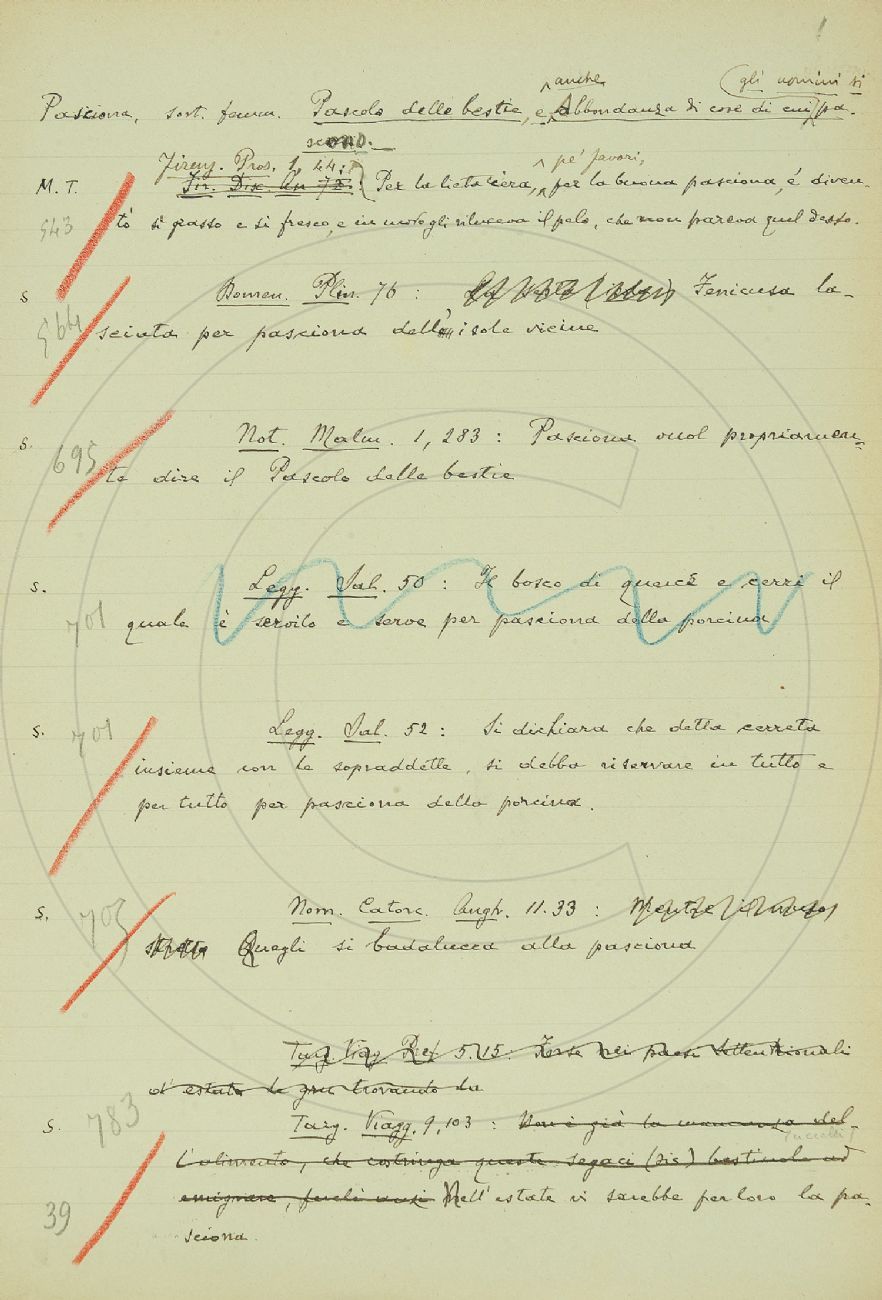 1
anche gli uomini si
Pasciona, sost. femm. Pascolo delle bestie, e Abbondanza di cose di cui pa-
scono.
Firenz. Pros. 1, 44: pe' favori,
M. T. Fir. Disc. An 72: Per la lieta cera, per la buona pasciona, è diven-
543 tò sì grasso e sì fresco, e in modo gli riluceva il pelo, che non pareva quel desso.
S Domen. Plin. 76 : Fenicusa la-
564 sciata per pasciona dell' isole vicine
S. Not. Malm. 1, 283 : Pasciona vuol propriamen-
695 te dire il Pascolo delle bestie
S. Legg. Sal. 50 : Il bosco di querce e cerri il
701 quale è servito e serve per pasciona della porcina
S. 701 Legg. Sal. 52 : Si dichiara che detta cerreta
insieme con le sopraddette, si debba riservare in tutto e
per tutto per pasciona della porcina.
S. 705 Nom. Catorc. Angh. 11.33 :
Quegli si badalucca alla pasciona
Targ. Viag. 5. 15: Forse nei paesi settentrionali
d'estate le gru trovando da
S. 783 Targ. Viagg. 9, 103 : Non è già la mancanza del-
l'alimento, che costringa queste segaci (sic) bestiuole ad
emigrare, Nell'estate vi sarebbe per loro la pa-
39 sciona.